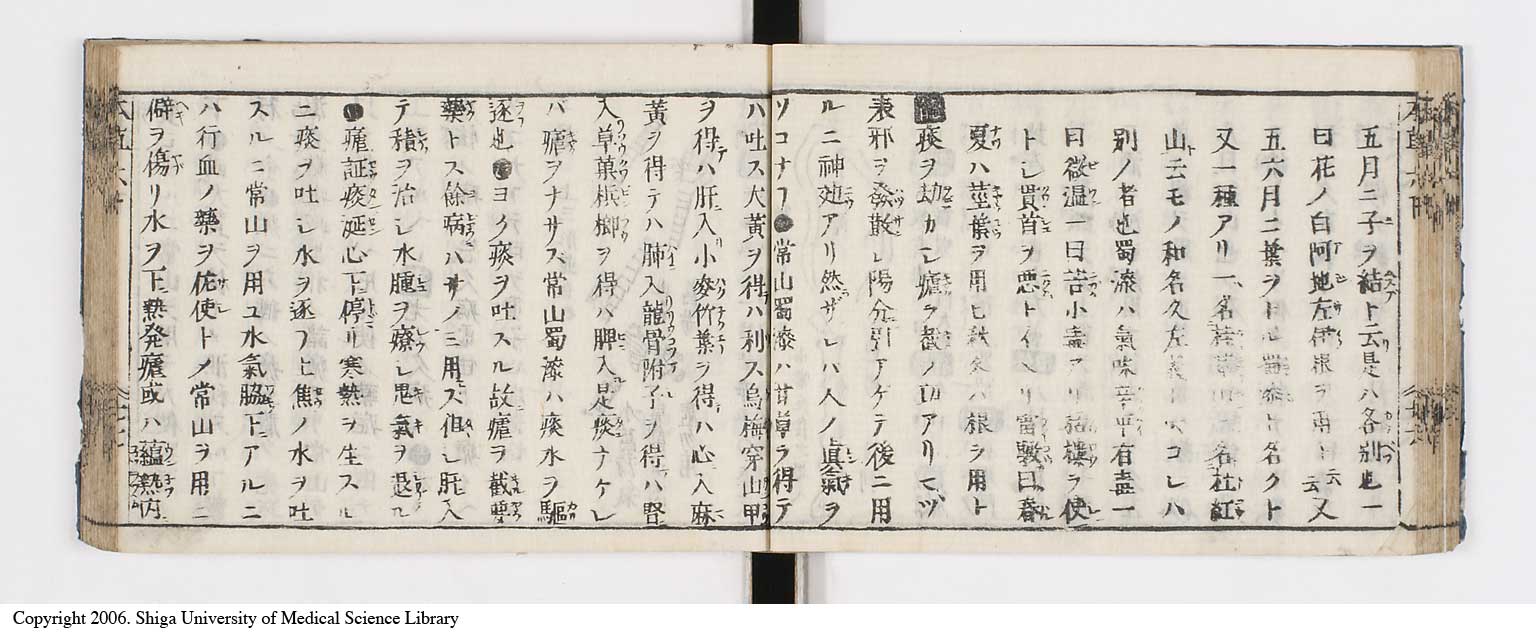 五月ニ子ヲ結ト云是ハ各別也一
曰花ノ白阿地左 根ヲ用ト云又
五六月ニ葉ヲトル蜀漆ト名クト
又一種アリ一名 山 名杜紅
山云モノ和名久左 コレハ
別ノ者也蜀漆ハ氣味辛平有毒一
曰微温一曰苦小毒アリ括樓ヲ使
トレ貫首ヲ悪トイヘリ雷斅曰春
夏ハ莖葉ヲ用ヒ秋冬ハ根ヲ用ト
痰ヲ劫カシ瘧ヲ截ノ功アリマヅ
表邪ヲ發散レ陽分引アゲテ後ニ用
ルニ神効アリ然ザレハ人ノ眞氣ヲ
ソコナフ●常山蜀漆ハ甘草ヲ得テ
ハ吐ス大黄ヲ得ハ利ス烏梅穿山甲
ヲ得テハ肝入小麥竹葉ヲ得ハ心入麻
黄ヲ得テハ肺入龍骨附子ヲ得ハ腎
入草菓梹榔ヲ得ハ脾入是痰ナケレ
バ瘧ヲナサス常山蜀漆ハ痰水ヲ驅
逐也 ヨク痰ヲ吐スル故瘧ヲ截要
藥トス餘病ハサノミ用ズ但レ肝入
テ積ヲ治レ水腫ヲ療レ鬼氣ヲ退ル
●瘧証痰涎心下停リ寒熱ヲ生スル
ニ痰ヲ吐レ水ヲ逐フ上焦ノ水ヲ吐
スルニ常山ヲ用ユ水氣脇下アルニ
ハ行血ノ藥ヲ佐使トメ常山ヲ用ニ
僻ヲ傷リ水ヲ下熱発瘧或ハ蘊熱内
Copyright 2006. Shiga University of Medical Science Library